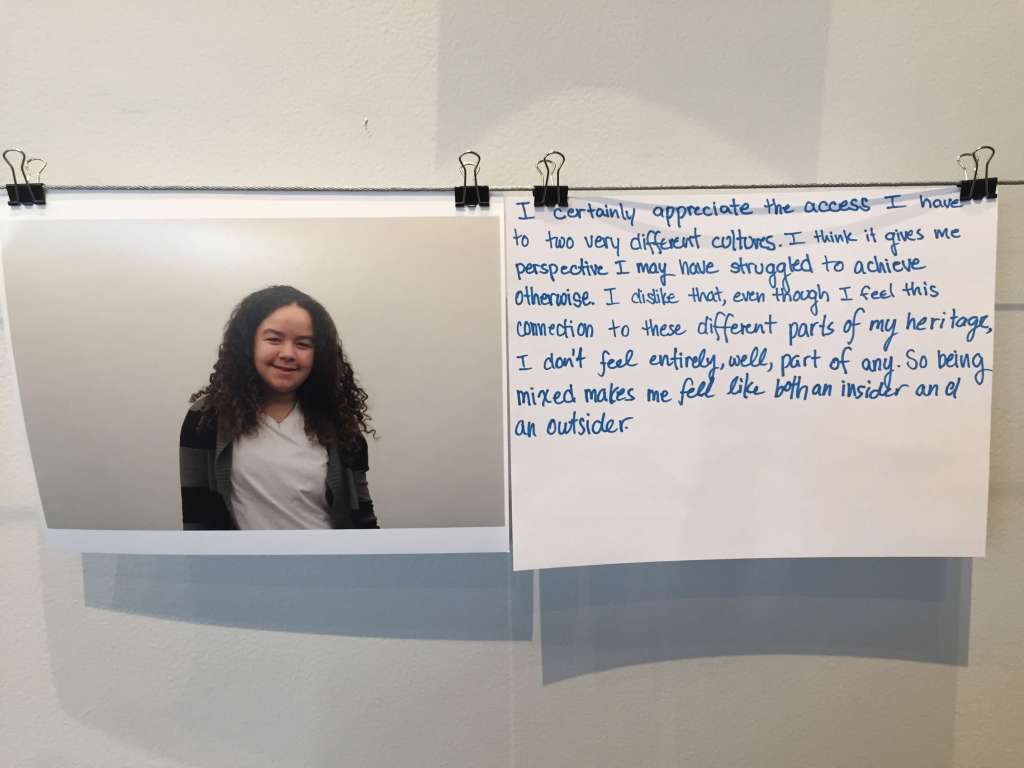 I certainly appreciate the access I have
to two very different cultures. I think it gives me
perspective I may have struggled to achieve
otherwise. I dislike that, even though I feel this
connection to these different parts of my heritage,
I don't feel entirely, well, part of any. So being
mixed makes me fell like both an insider and
an outsider.